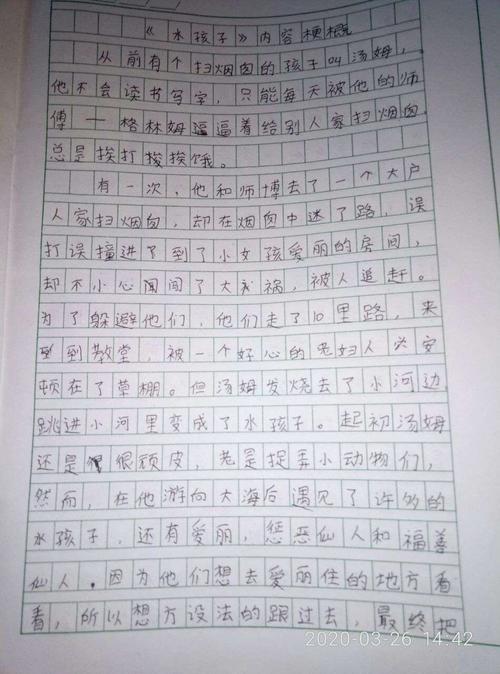 《水孩子》内容梗概
从前有个扫烟囱的孩子叫汤姆，
他不会读书写字，只能每天被他的师
傅一格林姆逼逼着给别人家扫烟囱
总是挨打挨饿。
有一次，他和师博去了一个大户
人家扫烟囱，却在烟囱中迷了路，误
打误撞进了到了小女孩爱丽的房间，
却不小心闻闯了大祸，被人追赶。
为了躲避他们，他们走了10里路，来
到到教堂，被一个好心的老妇人安
顿在了草棚。但汤姆发烧去了小河边
跳进小河里变成了水孩子。起初汤姆
还是很很顽皮，老是捉弄小动物们，
然而，在他游向大海后遇见了许多的
水孩子，还有爱丽，惩恶仙人和福善
仙人。因为他们想去爱丽住的地方看
看，所以想方设法的跟过去，最终把
2020-03-26 14:42